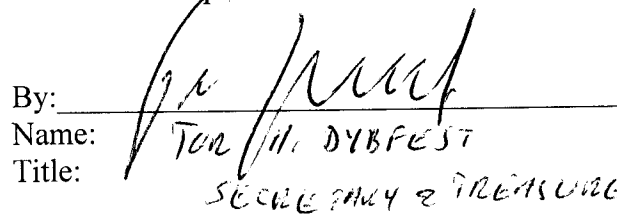 By:
Name: TOR H. DYBFEST
Title: SECRETARY & TREASURE